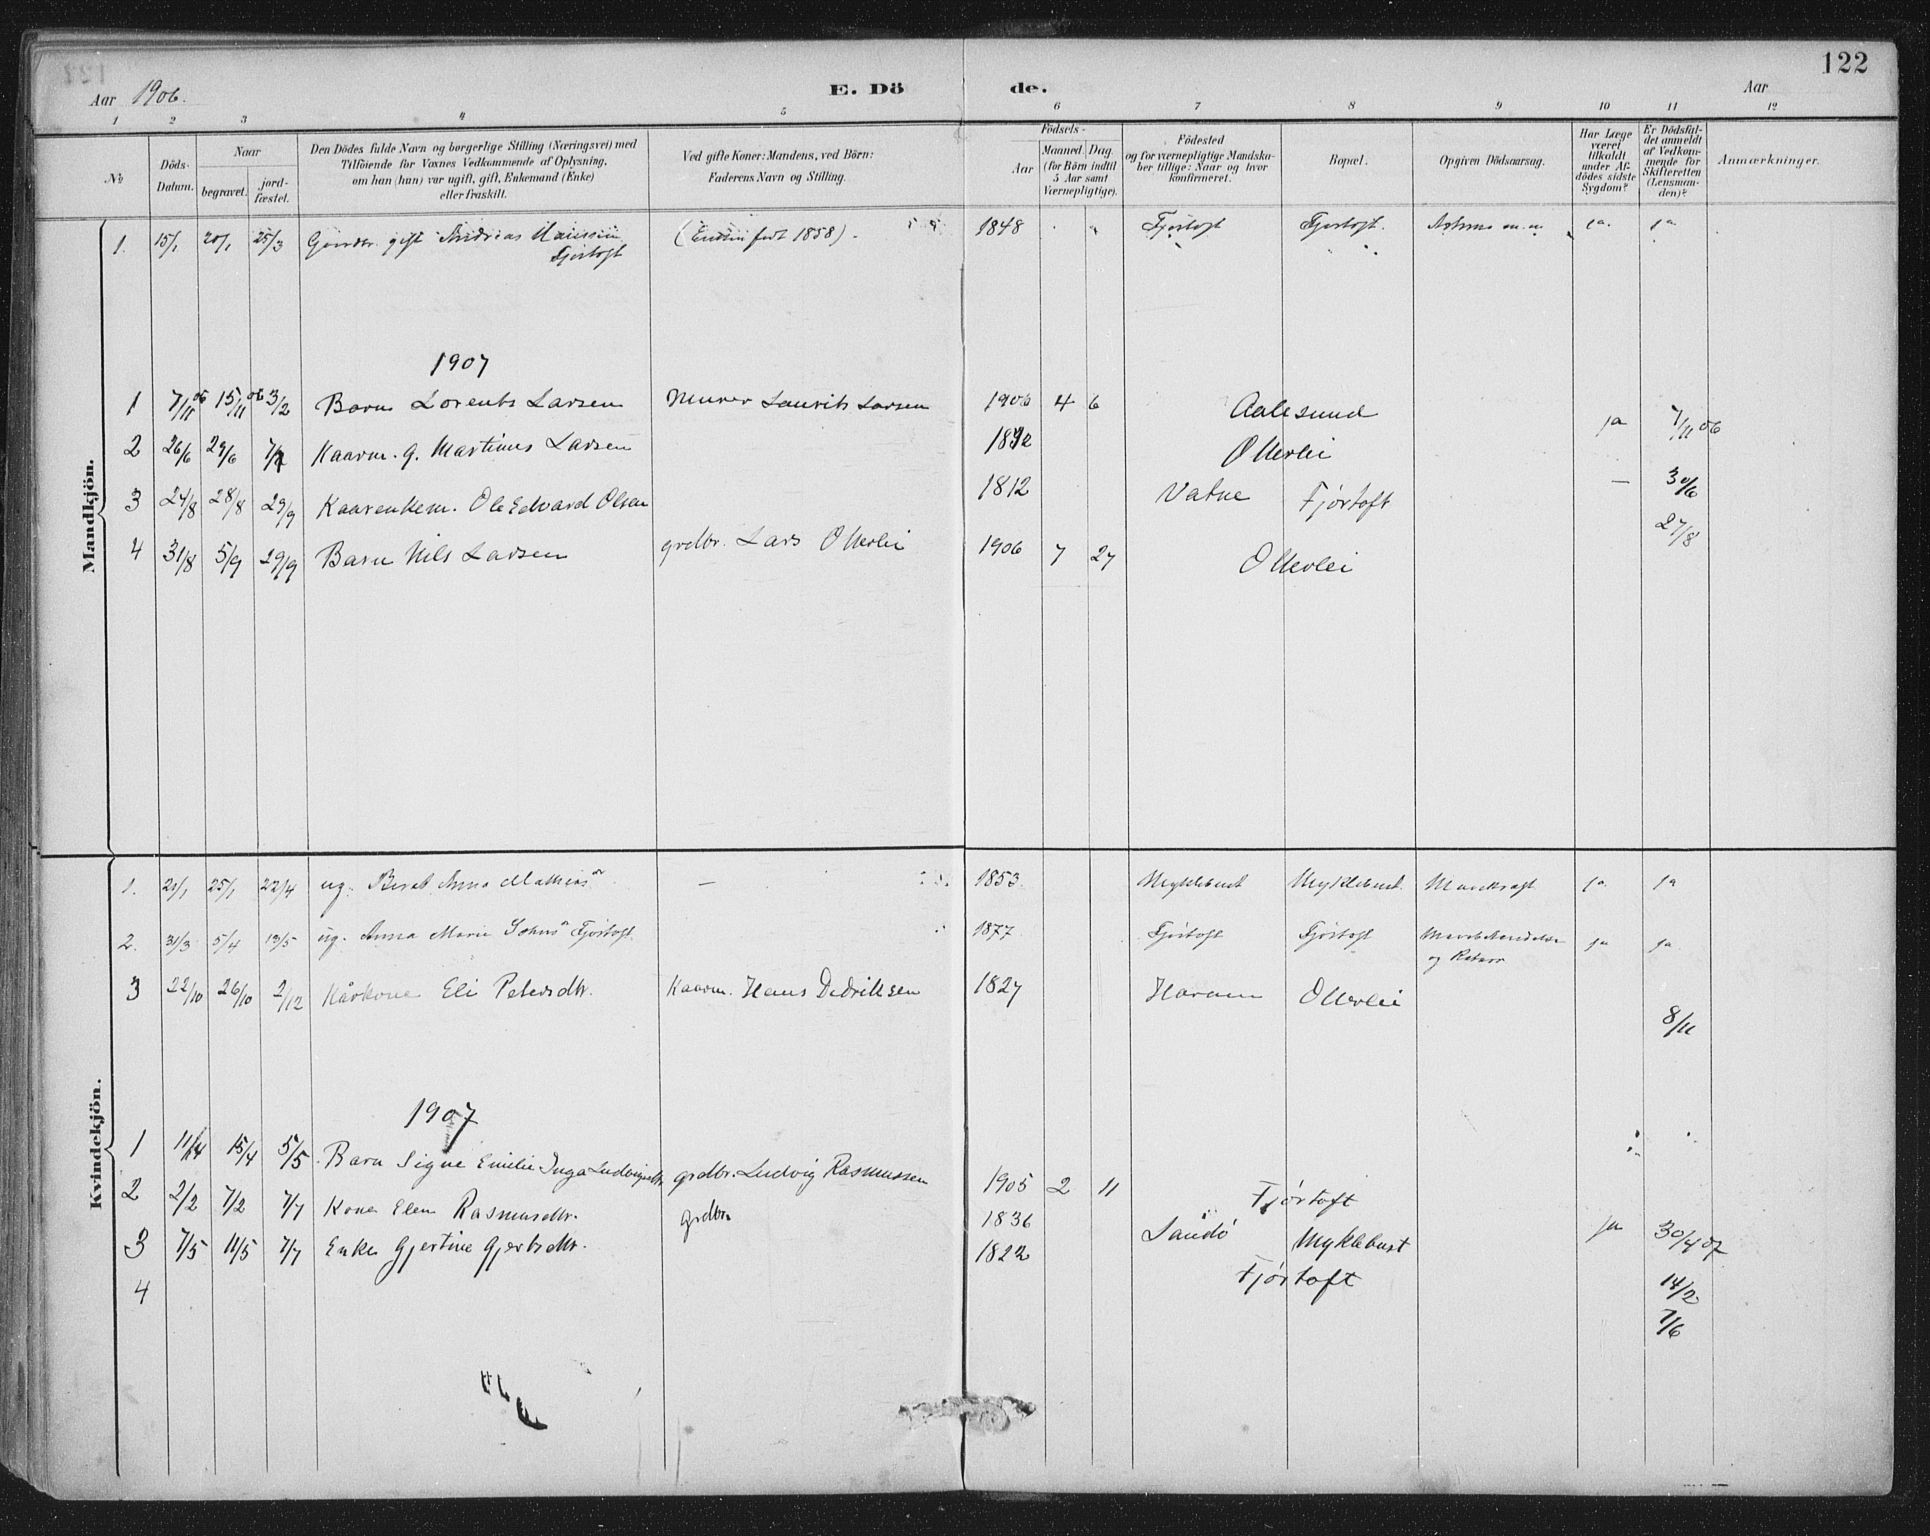 122
Aar 1906. E. Dö de. Aar
1 2 3 4 5 6 7 8 9 10 11 12
№ Döds-Datum. Naar begravet. jord-fæstet. Den Dödes fulde Navn og borgerlige Stilling (Næringsvei) med Tilföiende for Voxnes Vedkommende af Oplysning, om han (hun) var ugift, gift, Enkemand (Enke) eller fraskilt. Ved gifte Koner: Mandens, ved Börn: Faderens Navn og Stilling. Födsels- Aar Maaned. Dag. (for Börn indtil 5 Aar samt Værnepligtige). Födested og for værnepligtige Mandskaber tillige: Naar og hvor konfirmeret. Bopæl. Opgiven Dödsaarsag. Har Læge været tilkaldt under Afdödes sidste Sygdom? Er Dödsfaldet anmeldt af Vedkommende for Skifteretten (Lensmanden)? Anmærkninger.
Mandkjön.
1. 15/1 20/1 25/3 Gaardbr. gift Andreas Hansen ( født 1858). 1848 Fjørtoft Fjørtoft. ja. ja
Fjørtoft
1907
1 7/11 06 15/11 06 3/2 Barn Lorents Larsen Murer Laurits Larsen 1906 4 6 Aalesund ja 7/11 06
2 26/6 29/6 Kaarm. g. Martinus Larsen Otterlei — 30/6
3 24/8 28/8 29/9 Kaarenkem. Ole Edvard Olsen 1812 Vatne Fjørtoft 27/8
4 31/8 5/9 29/9 Barn Nils Larsen grdbr. Lars Otterlei 1906 7 27 Otterlei
Kvindekjön.
1. 25/1 22/4 ug. Berit Anna Mathias — 1853. Myklebust Myklebust. ja. ja
2. 31/3 5/4 ug. Anna Marie Johns Fjørtoft 1877 Fjørtoft Fjørtoft ja ja
og
3 22/10 26/10 2/12 Kårkone Eli Petersdtr. Kaarm. Hans Dedriksen 1827 Haram Otterlei 8/11
1907
1 11/4 15/4 5/5 Barn Signe Emilie Inga Ludvigsdtr. grdbr. Ludvig Rasmussen 1905 2 11 Fjørtoft ja 30/4 07
2 2/2 7/2 7/7 Kone Elen Rasmusdtr. grdbr. 1836 Sandø Myklebust 14/2
3 7/5 11/5 7/7 Enke Gjertine Gjertsdtr. 1822 Fjørtoft 7/6
4